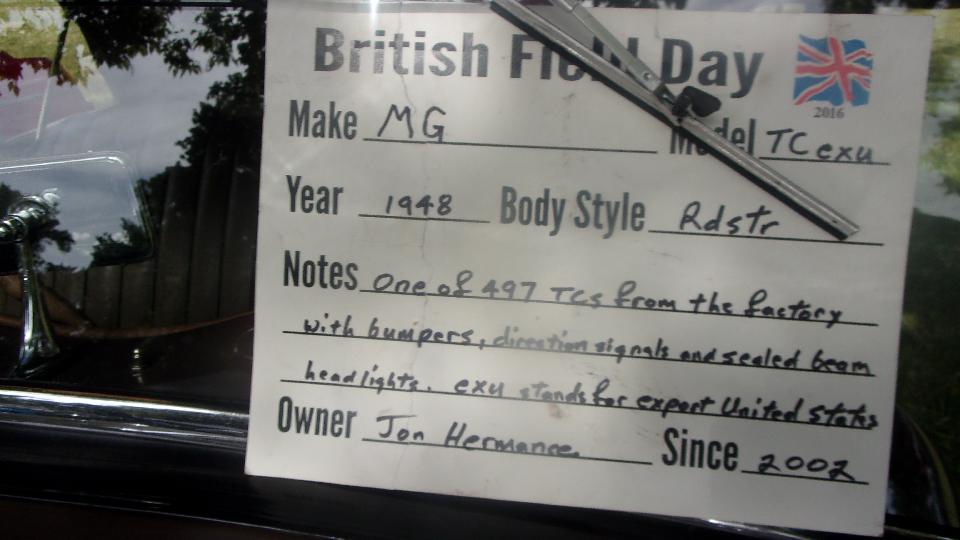 British Field Day
2016
Make MG Model TC exu
Year 1948 Body Style Rdstr
Notes One of 497 TCs from the factory
with bumpers, direction signals and sealed beam
headlights. exu stands for export United States
Owner Jon Hermance Since 2002